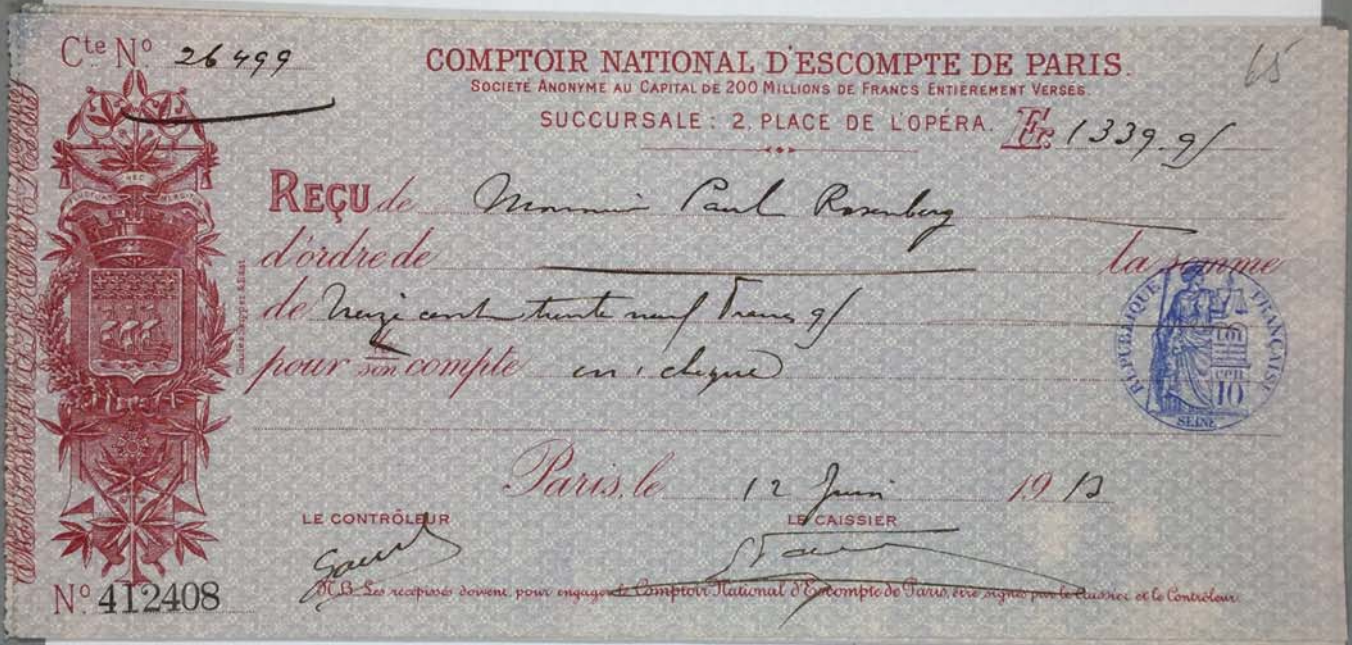 Cte No 26499
65
COMPTOIR NATIONAL D'ESCOMPTE DE PARIS.
SOCIÉTÉ ANONYME AU CAPITAL DE 200 MILLIONS DE FRANCS ENTIÈREMENT VERSÉS.
SUCCURSALE : 2, PLACE DE L'OPÉRA. Fr. 1339.95
REÇU de Monsieur Paul Rosenberg
d'ordre de la somme
de treize cent trente neuf francs 95
pour son compte en chèque
REPUBLIQUE FRANÇAISE
LOI
10
SEINE
Paris, le 12 Juin 1913
LE CONTRÔLEUR LE CAISSIER
No 412408
N.B. Les récépissés doivent, pour engager le Comptoir National d'Escompte de Paris, être signés par le Caissier et le Contrôleur.